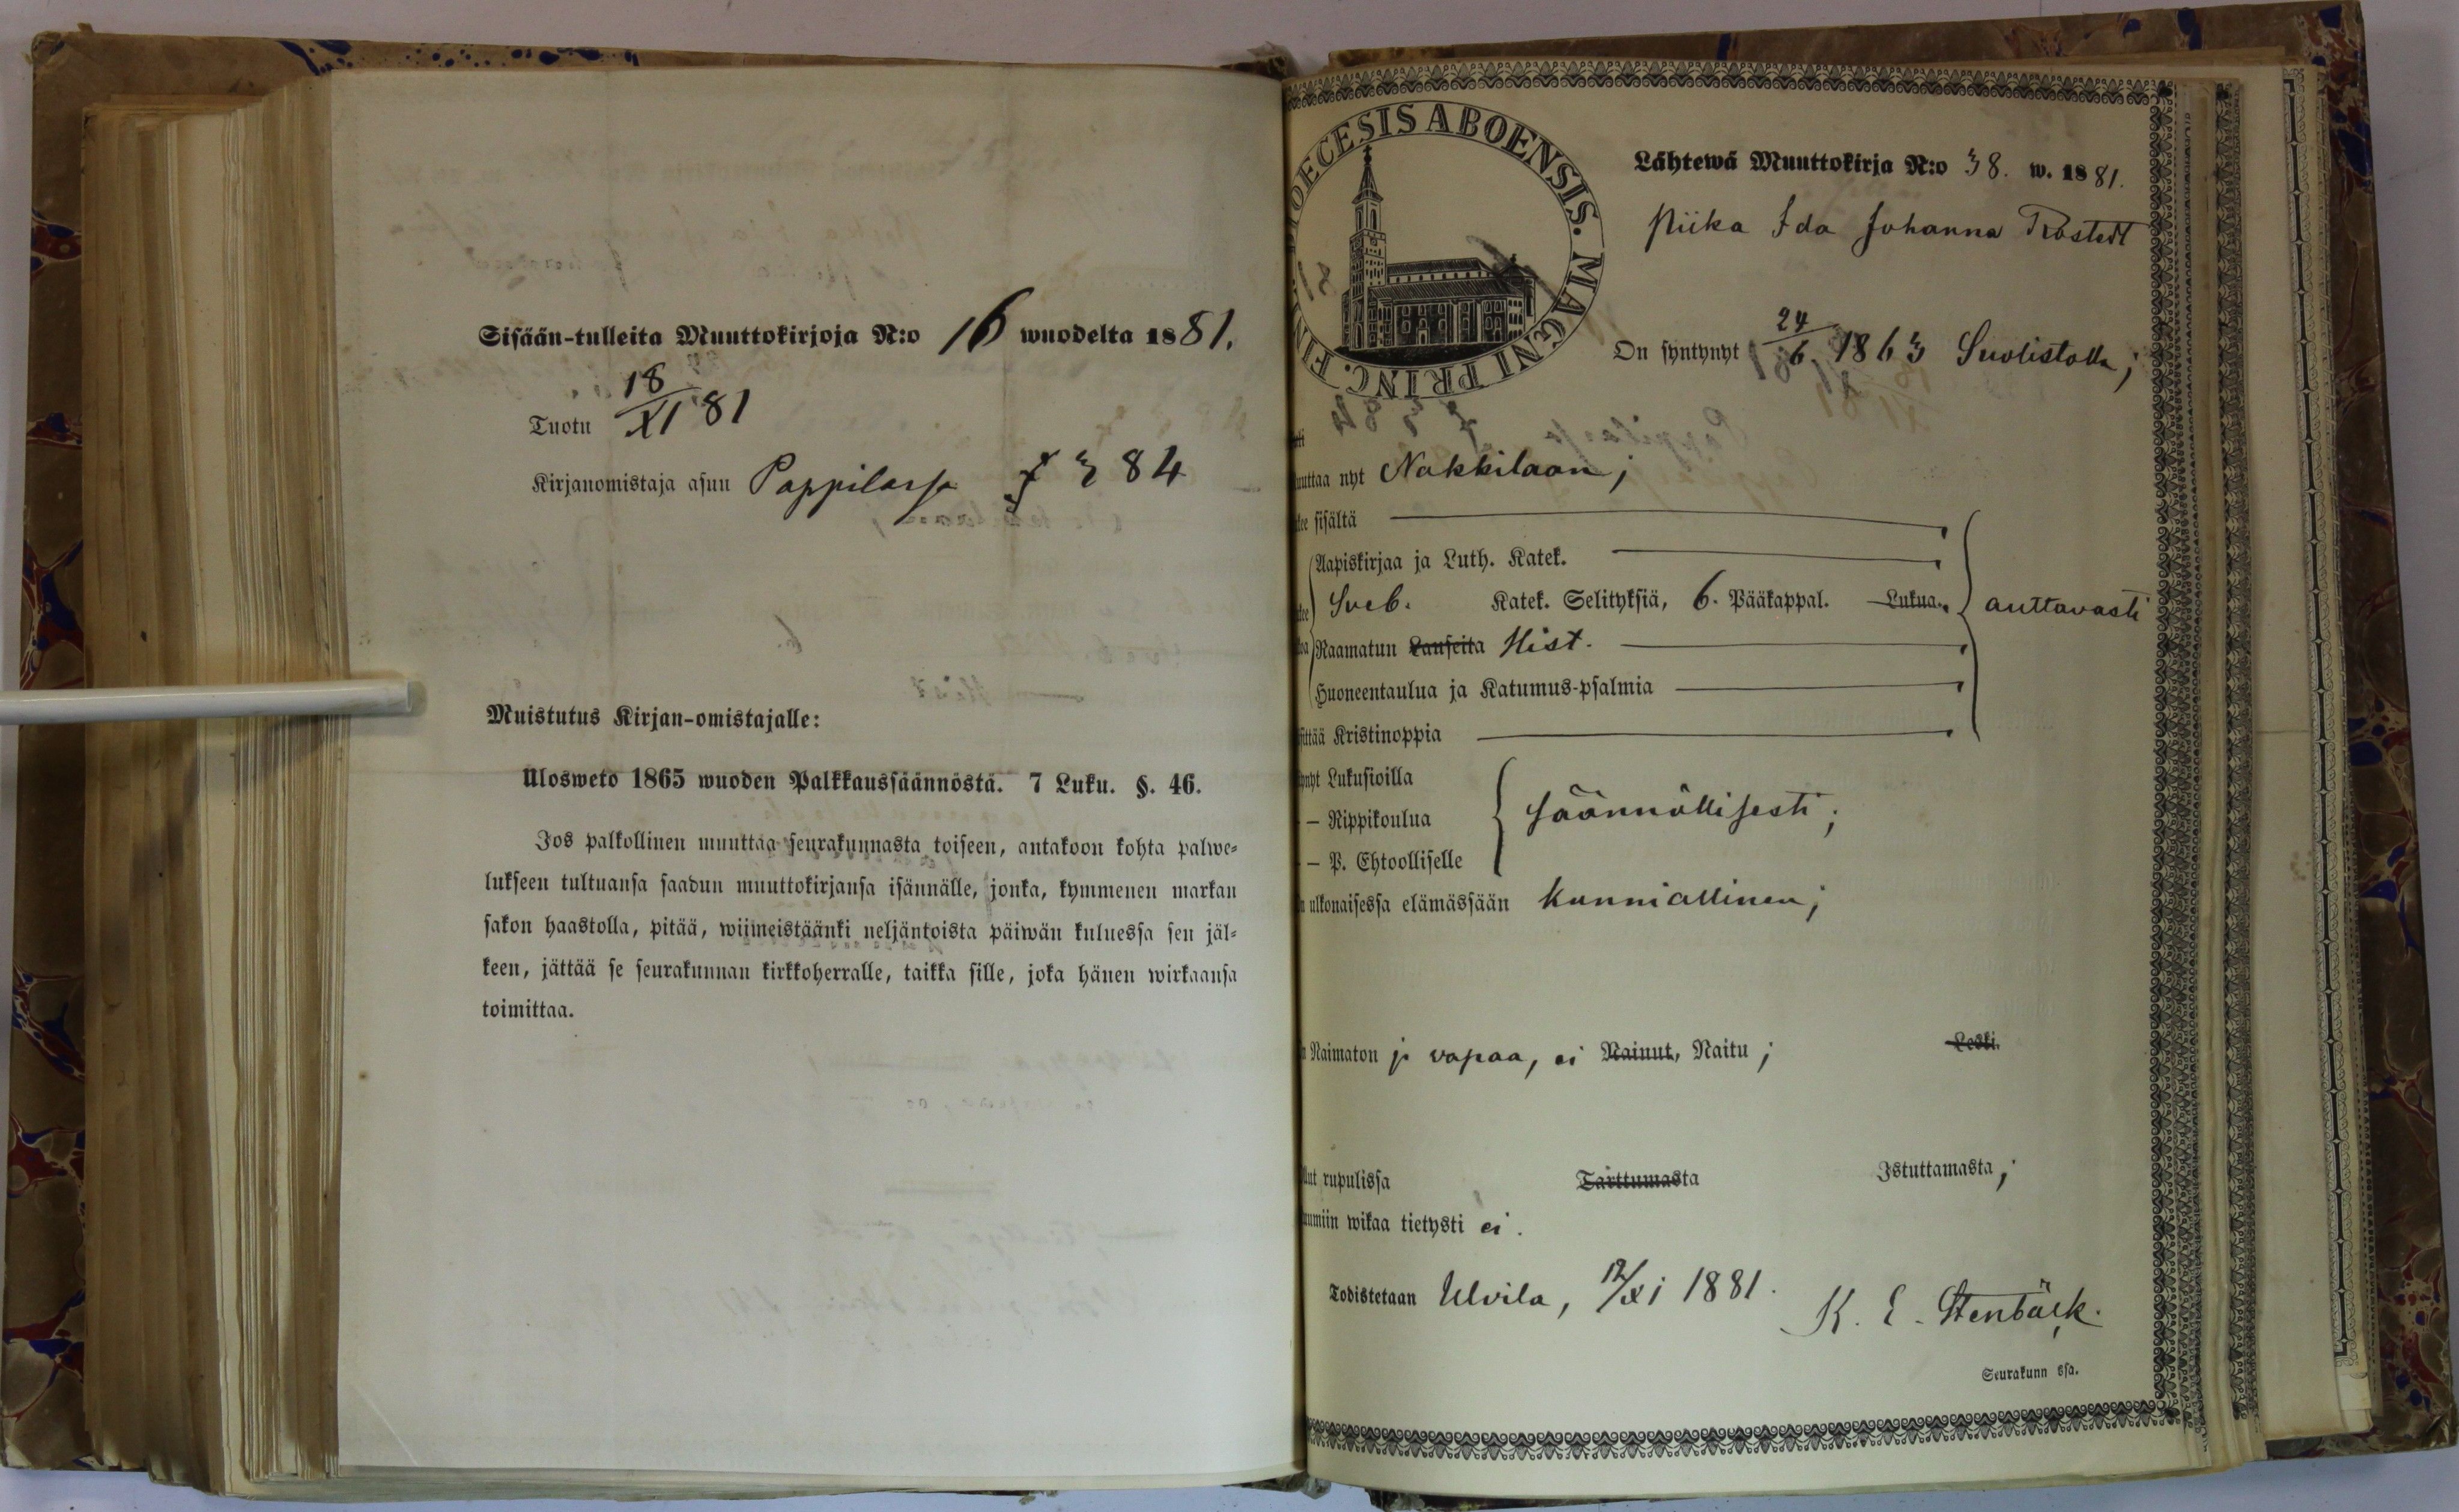 Sisään-tulleita Muuttokirjoja N:o 16 wuodelta 1881.
Tuotu 18/XI 81
Kirjanomistaja asuu Pappilassa f 384
Muistutus Kirjan-omistajalle:
Ulosweto 1865 wuoden Palkkaussäännöstä. 7 Luku. §. 46.
Jos palkollinen muuttaa seurakunnasta toiseen, antakoon kohta palwe-
lukseen tultuansa saadun muuttokirjansa isännälle, jonka, kymmenen markan
sakon haastolla, pitää, wiimeistäänki neljäntoista päiwän kuluessa sen jäl-
keen, jättää se seurakunnan kirkkoherralle, taikka sille, joka hänen wirkaansa
toimittaa.
OECESIS ABOENSIS. MAGNI PRINC. FIN
Lähtewä Muuttokirja N:o 38. w. 1881.
Piika Ida Johanna Rostedt
On syntynyt 24/6 1863 Suolistolla;
uuttaa nyt Nakkilaan;
kee sisältä
Aapiskirjaa ja Luth. Katek.
Sveb. Katek. Selityksiä, 6. Pääkappal. Lukua. auttavasti
Raamatun Lauseita Hist.
Huoneentaulua ja Katumus-psalmia
sittää Kristinoppia
ynyt Lukusioilla
— Rippikoulua säännöllisesti;
— P. Ehtoolliselle
n ulkonaisessa elämässään kunniallinen;
n Naimaton ja vapaa, ei Nainut, Naitu; Leski.
llut rupulissa Tarttumasta Istuttamasta;
uumiin wikaa tietysti ei.
Todistetaan Ulvila, 12/XI 1881. K. E. Stenbäck.
Seurakunn ssa.